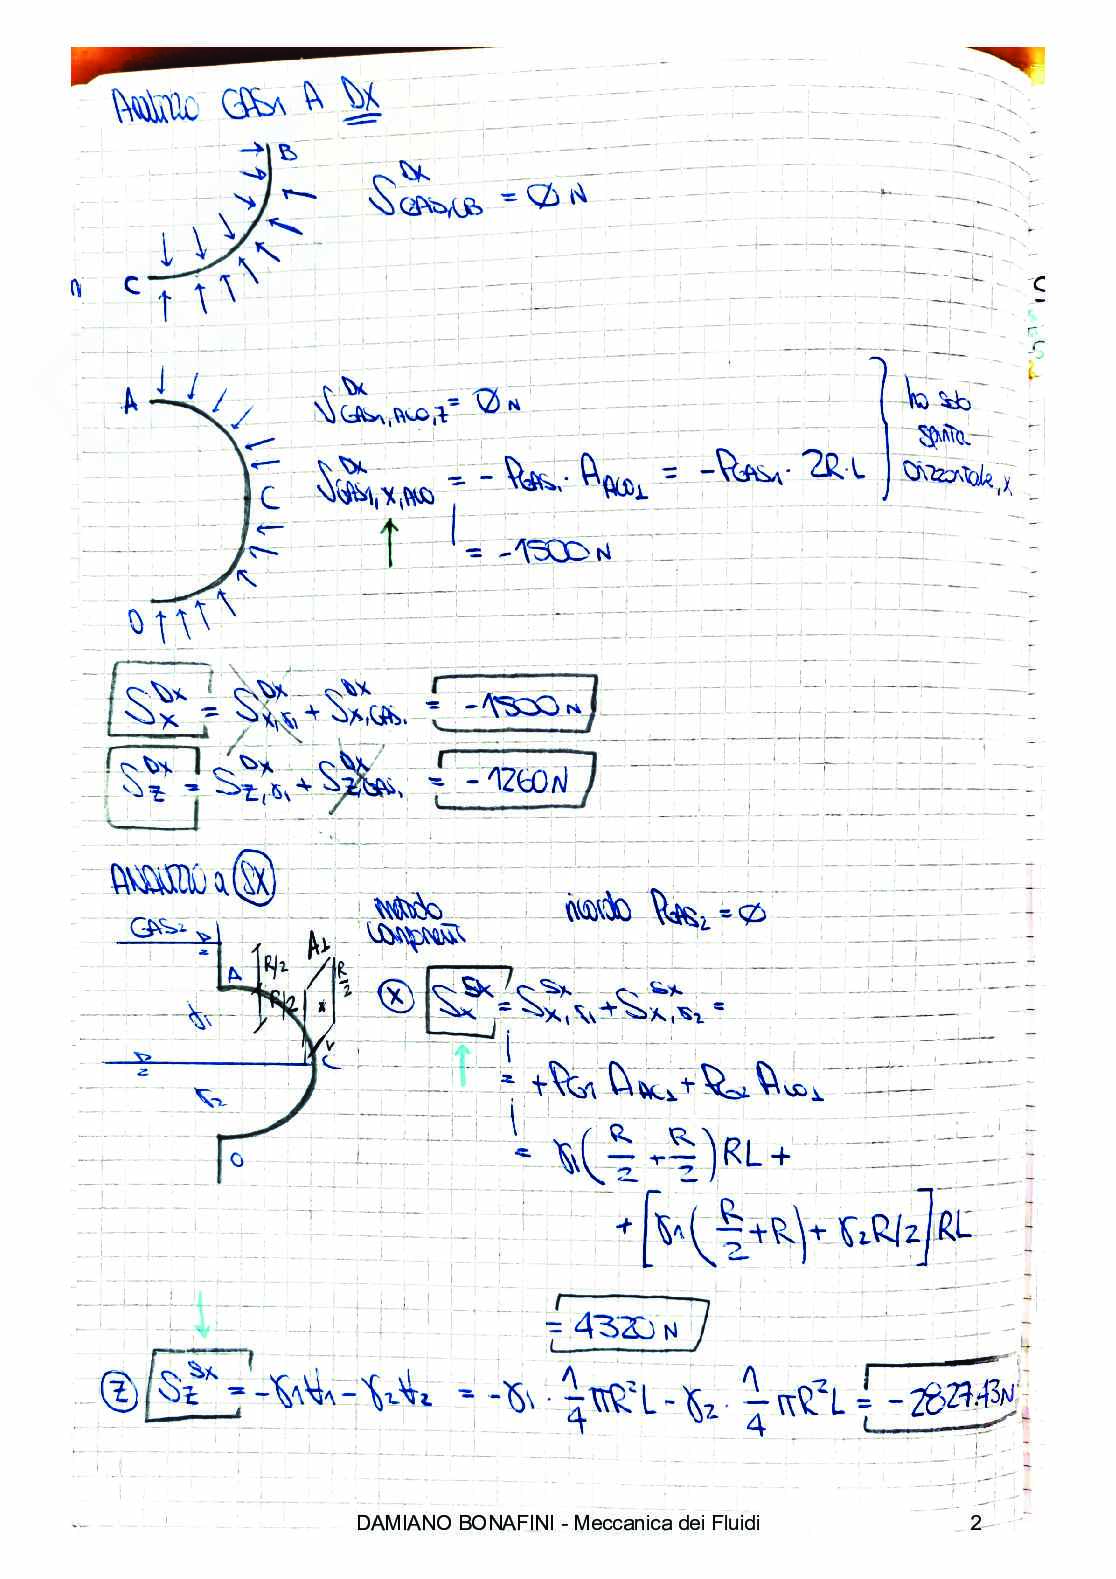 ANALIZZO GAS1 A DX
B
S^DX_GAS1,CB = Ø N
C
A
S^DX_GAS1,ACD,Z = Ø N
ho solo
spinta
orizzontale, x
S^DX_GAS1,X,ACD = - P_GAS1 · A_ACD⊥ = - P_GAS1 · 2R·L
C
= -1500 N
D
S^DX_X = S^DX_X,γ1 + S^DX_X,GAS1 = -1500 N
S^DX_Z = S^DX_Z,γ1 + S^DX_Z,GAS1 = -1260 N
ANALIZZO a SX
metodo
componenti
ricordo P_GAS2 = Ø
GAS2
A
R/2
R/2
A⊥
R/2
γ1
C
γ2
D
(X) S^SX_X = S^SX_X,γ1 + S^SX_X,γ2 =
= + P_G1 A_AC⊥ + P_G2 A_CD⊥
= γ1 (R/2 + R/2) RL +
+ [γ1 (R/2 + R) + γ2 R/2] RL
= 4320 N
(Z) S^SX_Z = - γ1 V1 - γ2 V2 = - γ1 · 1/4 πR²L - γ2 · 1/4 πR²L = - 2827.43 N
DAMIANO BONAFINI - Meccanica dei Fluidi
2